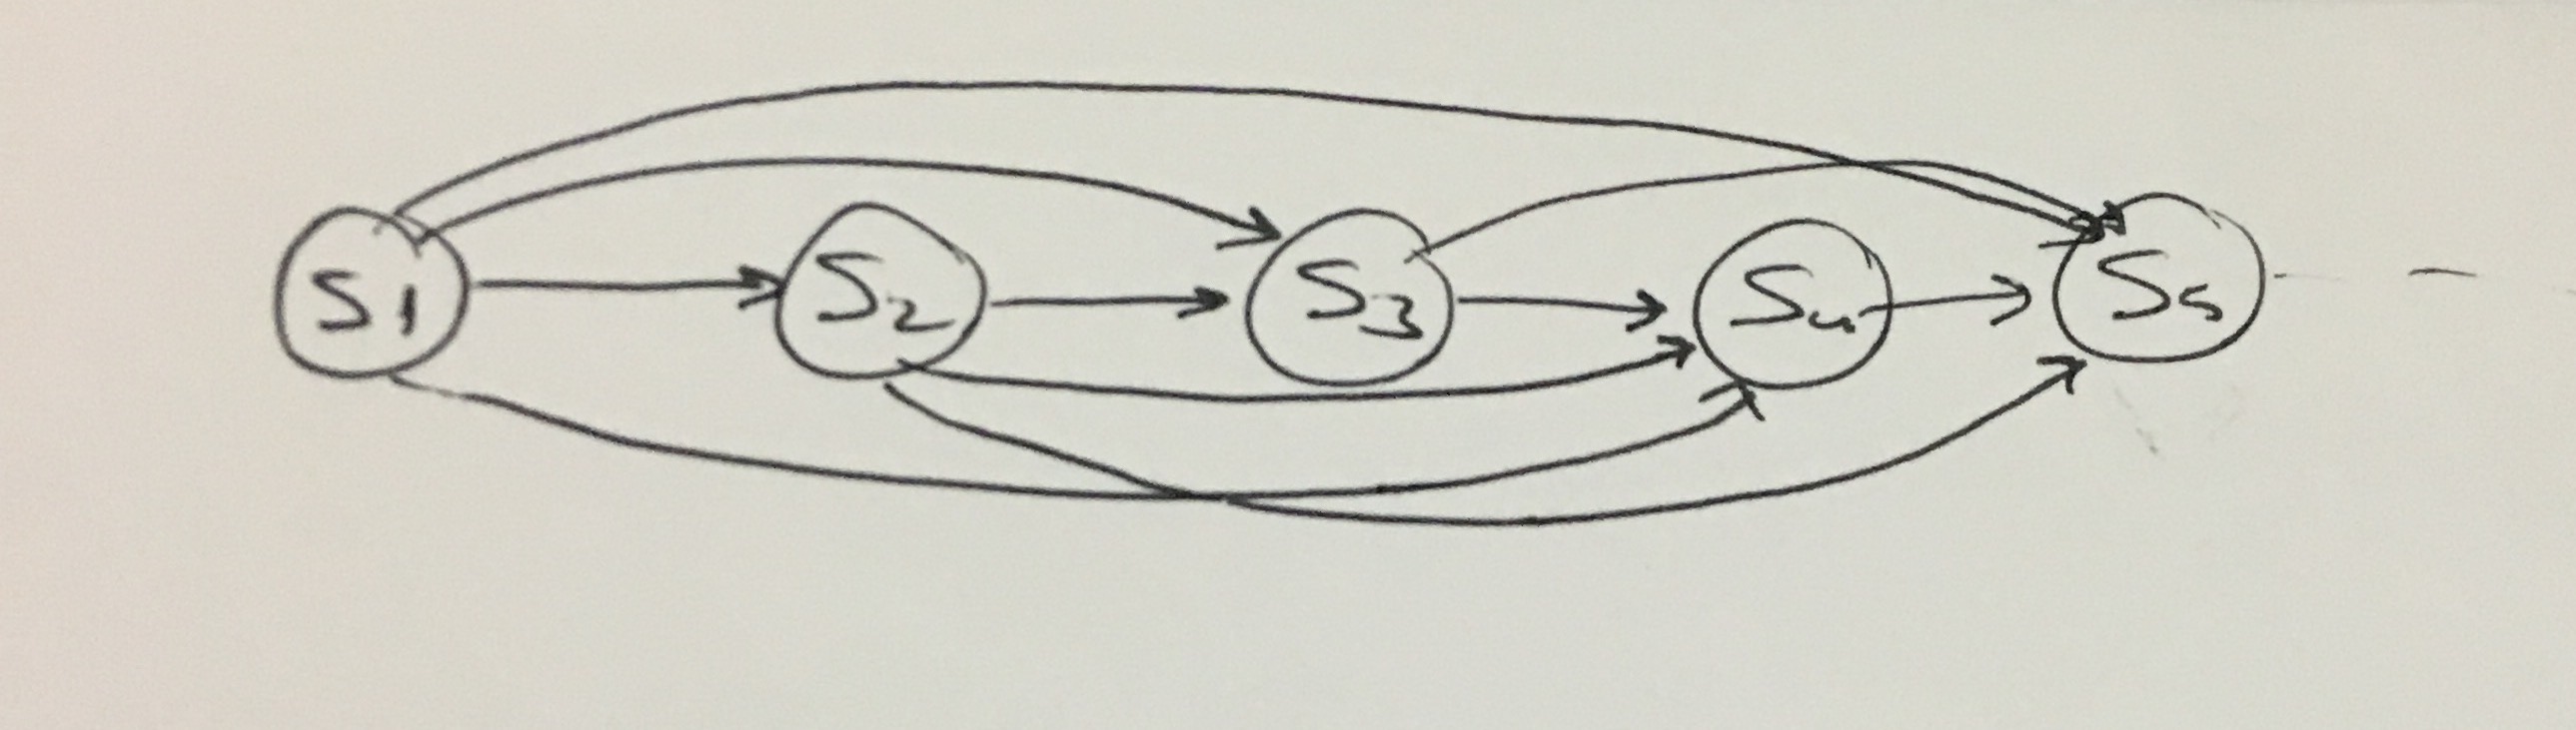 S1 S2 S3 S4 S5